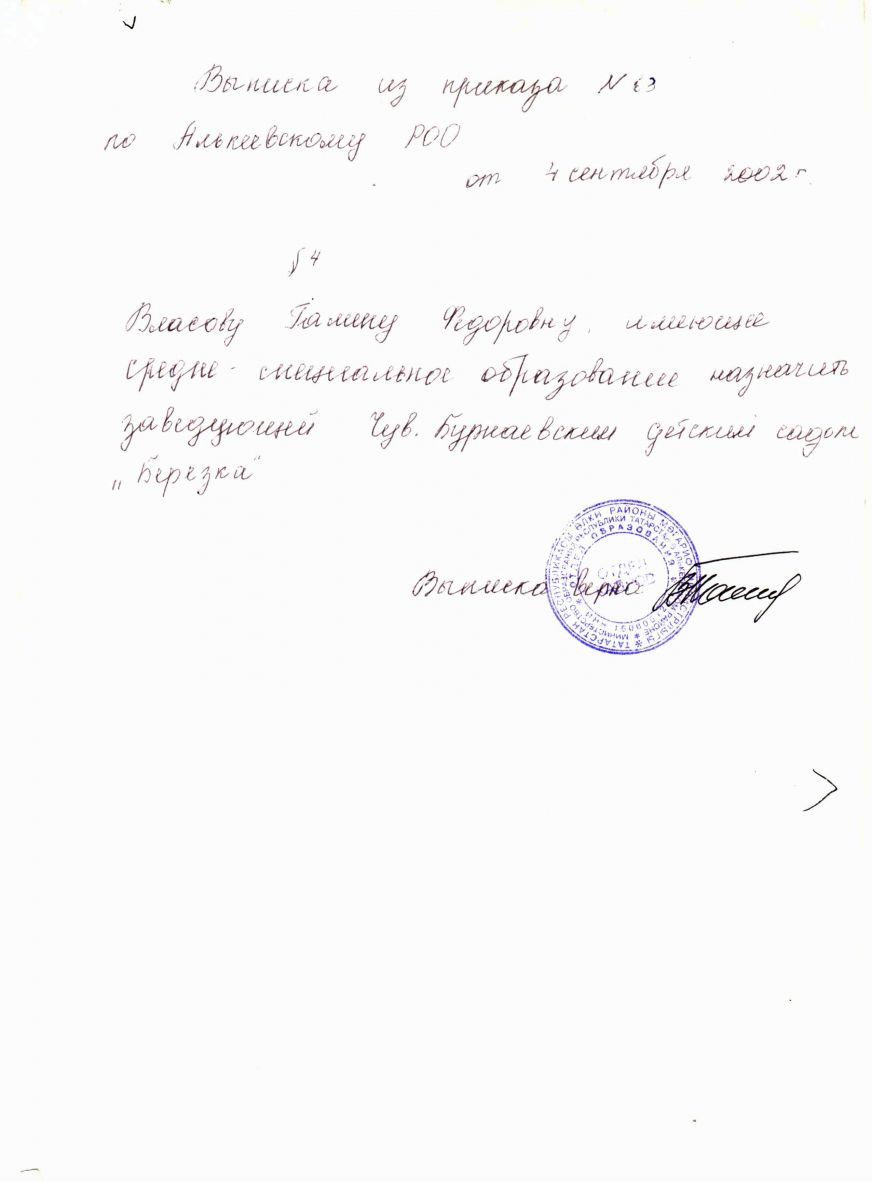 Выписка из приказа N 63
по Алькеевскому РОО
от 4 сентября 2002 г.
§ 4
Власову Галину Федоровну, имеющее
средне-специальное образование назначить
заведующей Чув. Бурнаевским детским садом
„Березка“
Выписка верна
ОТДЕЛ ОБРАЗОВАНИЯ
ОТДЕЛ